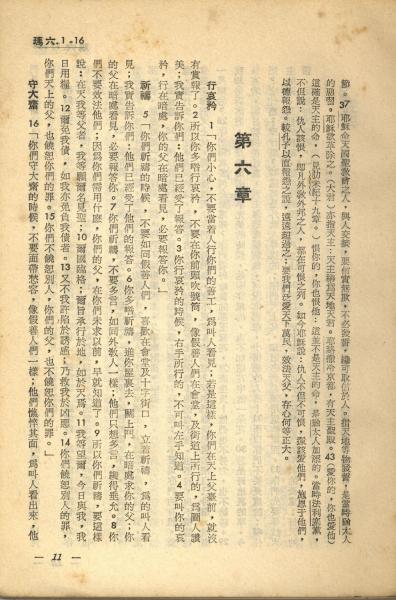 瑪六. 1-16
節。37 耶穌命天國聖教裡之人，與人交接，要信實無欺，不必發誓，纔可取信於人。指天地等物發誓，是當時猶太人
的惡習。耶穌欲革除之。（大君）亦指天主：天主稱爲天地大君。耶路撒冷京都，有天主聖殿。43（愛你的，你也愛他）
這確是天主的命，（見肋未紀十九章。）恨你的，你也恨他：這並不是天主的命，是猶太人加添的。當時法利塞黨，
不但說：仇人該恨，即凡外教外邦之人，都在可恨之列。如今耶穌說：仇人不但不可恨，還該愛他們，施恩于他們，
以德報怨。較孔子以直報怨之說，遠遠超過之；要我們泛愛天下萬民，效法天父，存心何等正大。
第六章
行哀矜 1「你們小心，不要當着人行你們的善工，爲叫人看見；若是這樣，你們在天上父臺前，就沒
有賞報了。2 所以你多咱行哀矜，不要在你前頭吹號筒，像假善人們在會堂，及街道上所行的，爲圖人讚
美：我實告訴你們：他們已經受了報答。3 你行哀矜的時候，右手所行的，不可叫左手知道。4 要叫你的哀
矜，行在暗處，你的父在暗處看見，必要報答你。」
祈禱 5「你們祈禱的時候，不要如同假善人們，喜歡在會堂及十字街口，立着祈禱，爲的叫人看
見；我實告訴你們：他們已經受了他們的報答。6 你多咱祈禱，進你屋裏去，關上門，在暗處求你的父；你
的父在暗處看見，必要報答你。7 你們祈禱，不要多言，如同外教人一樣；他們只想多言，纔得垂允。8 你
們不要效法他們；因爲你們需用什麽，你們的父，在你們未求以前，早就知道了。9 所以你們祈禱，要這樣
說：在天我等父者，我等願爾名見聖；10 爾國臨格；爾旨承行於地，如於天焉。11 我等望爾，今日與我，我
日用糧。12 爾免我債，如我亦免負我債者。13 又不我許陷於誘惑；乃救我於凶惡。14 你們饒恕別人的罪，
你們天上的父，也饒恕你們的罪。15 你們不饒恕別人，你們的父，也不饒恕你們的罪。」
守大齋 16「你們守大齋的時候，不要面帶愁容，像假善人們一樣；他們憔悴其面，爲叫人看出來，他
— 11 —